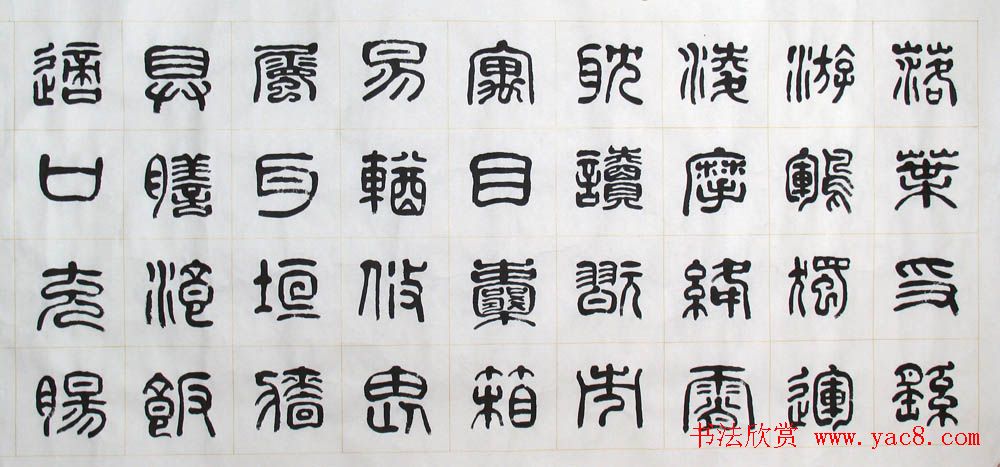 落葉繇
游鶤獨運
淩摩絳霄
耽讀翫市
寓目囊箱
易輶攸畏
屬耳垣牆
具膳湌飯
適口充腸
书法欣赏 www.yac8.com